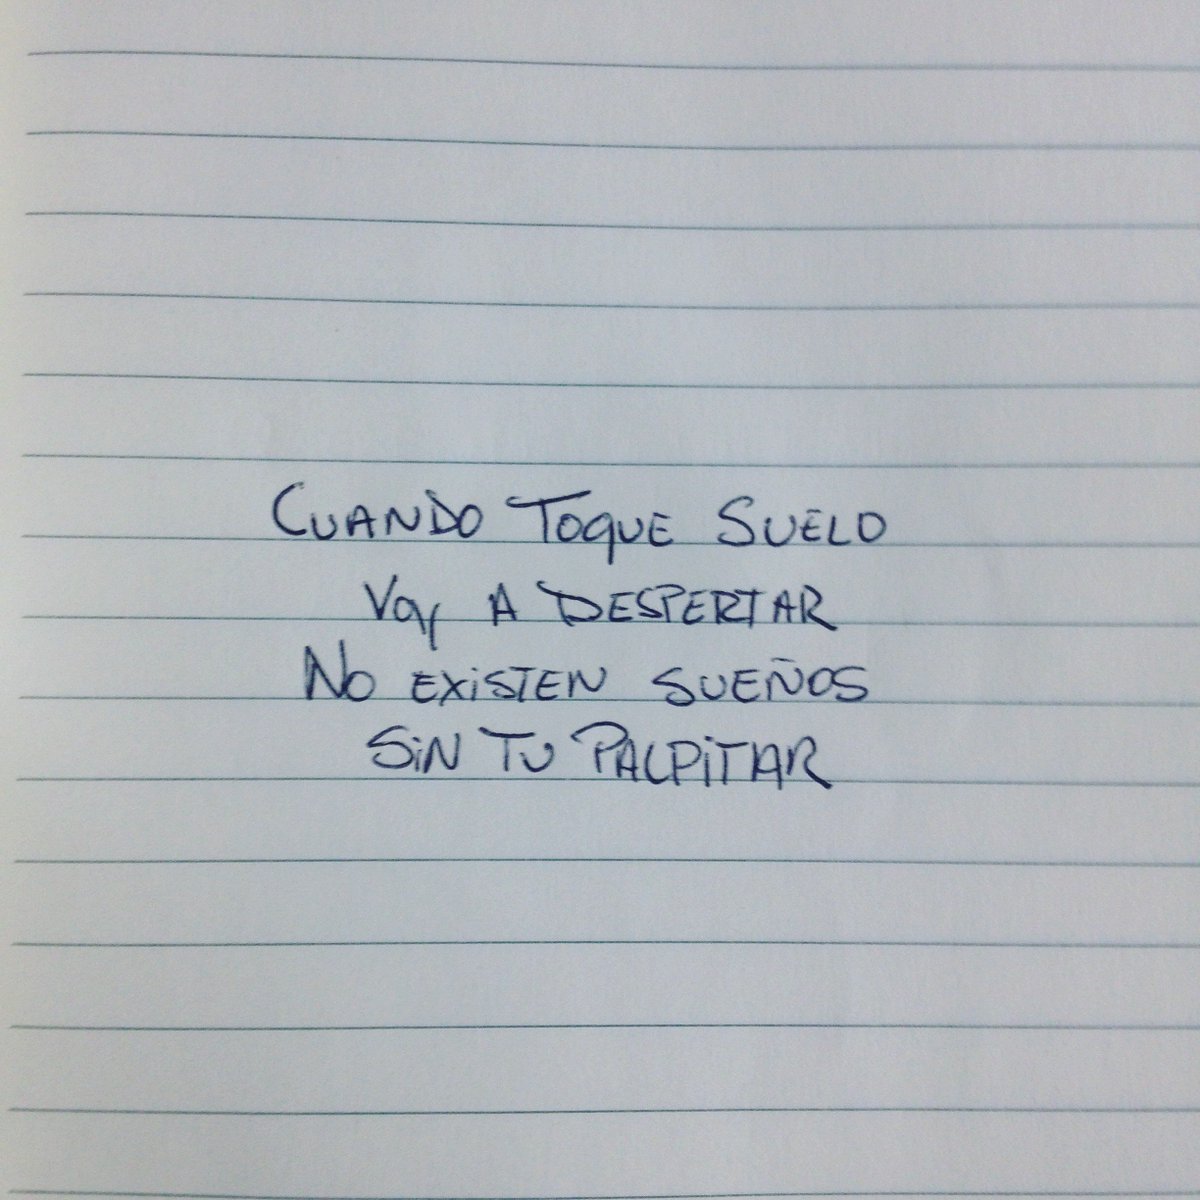 CUANDO TOQUE SUELO
VOY A DESPERTAR
NO EXISTEN SUEÑOS
SiN TU PALPiTAR